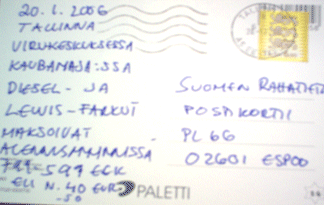 20.1.2006
TALLINNA
VIRUKESKUKSESSA
KAUBAMAJA:SSA
DIESEL- JA
LEWIS-FARKUT
MAKSOIVAT
ALENNUSMYYNNISSÄ
799-599 EEK
ELI N. 40 EUR
-50
SUOMEN RAHATIETO
POSTIKORTTI
PL 66
02601 ESPOO
PALETTI